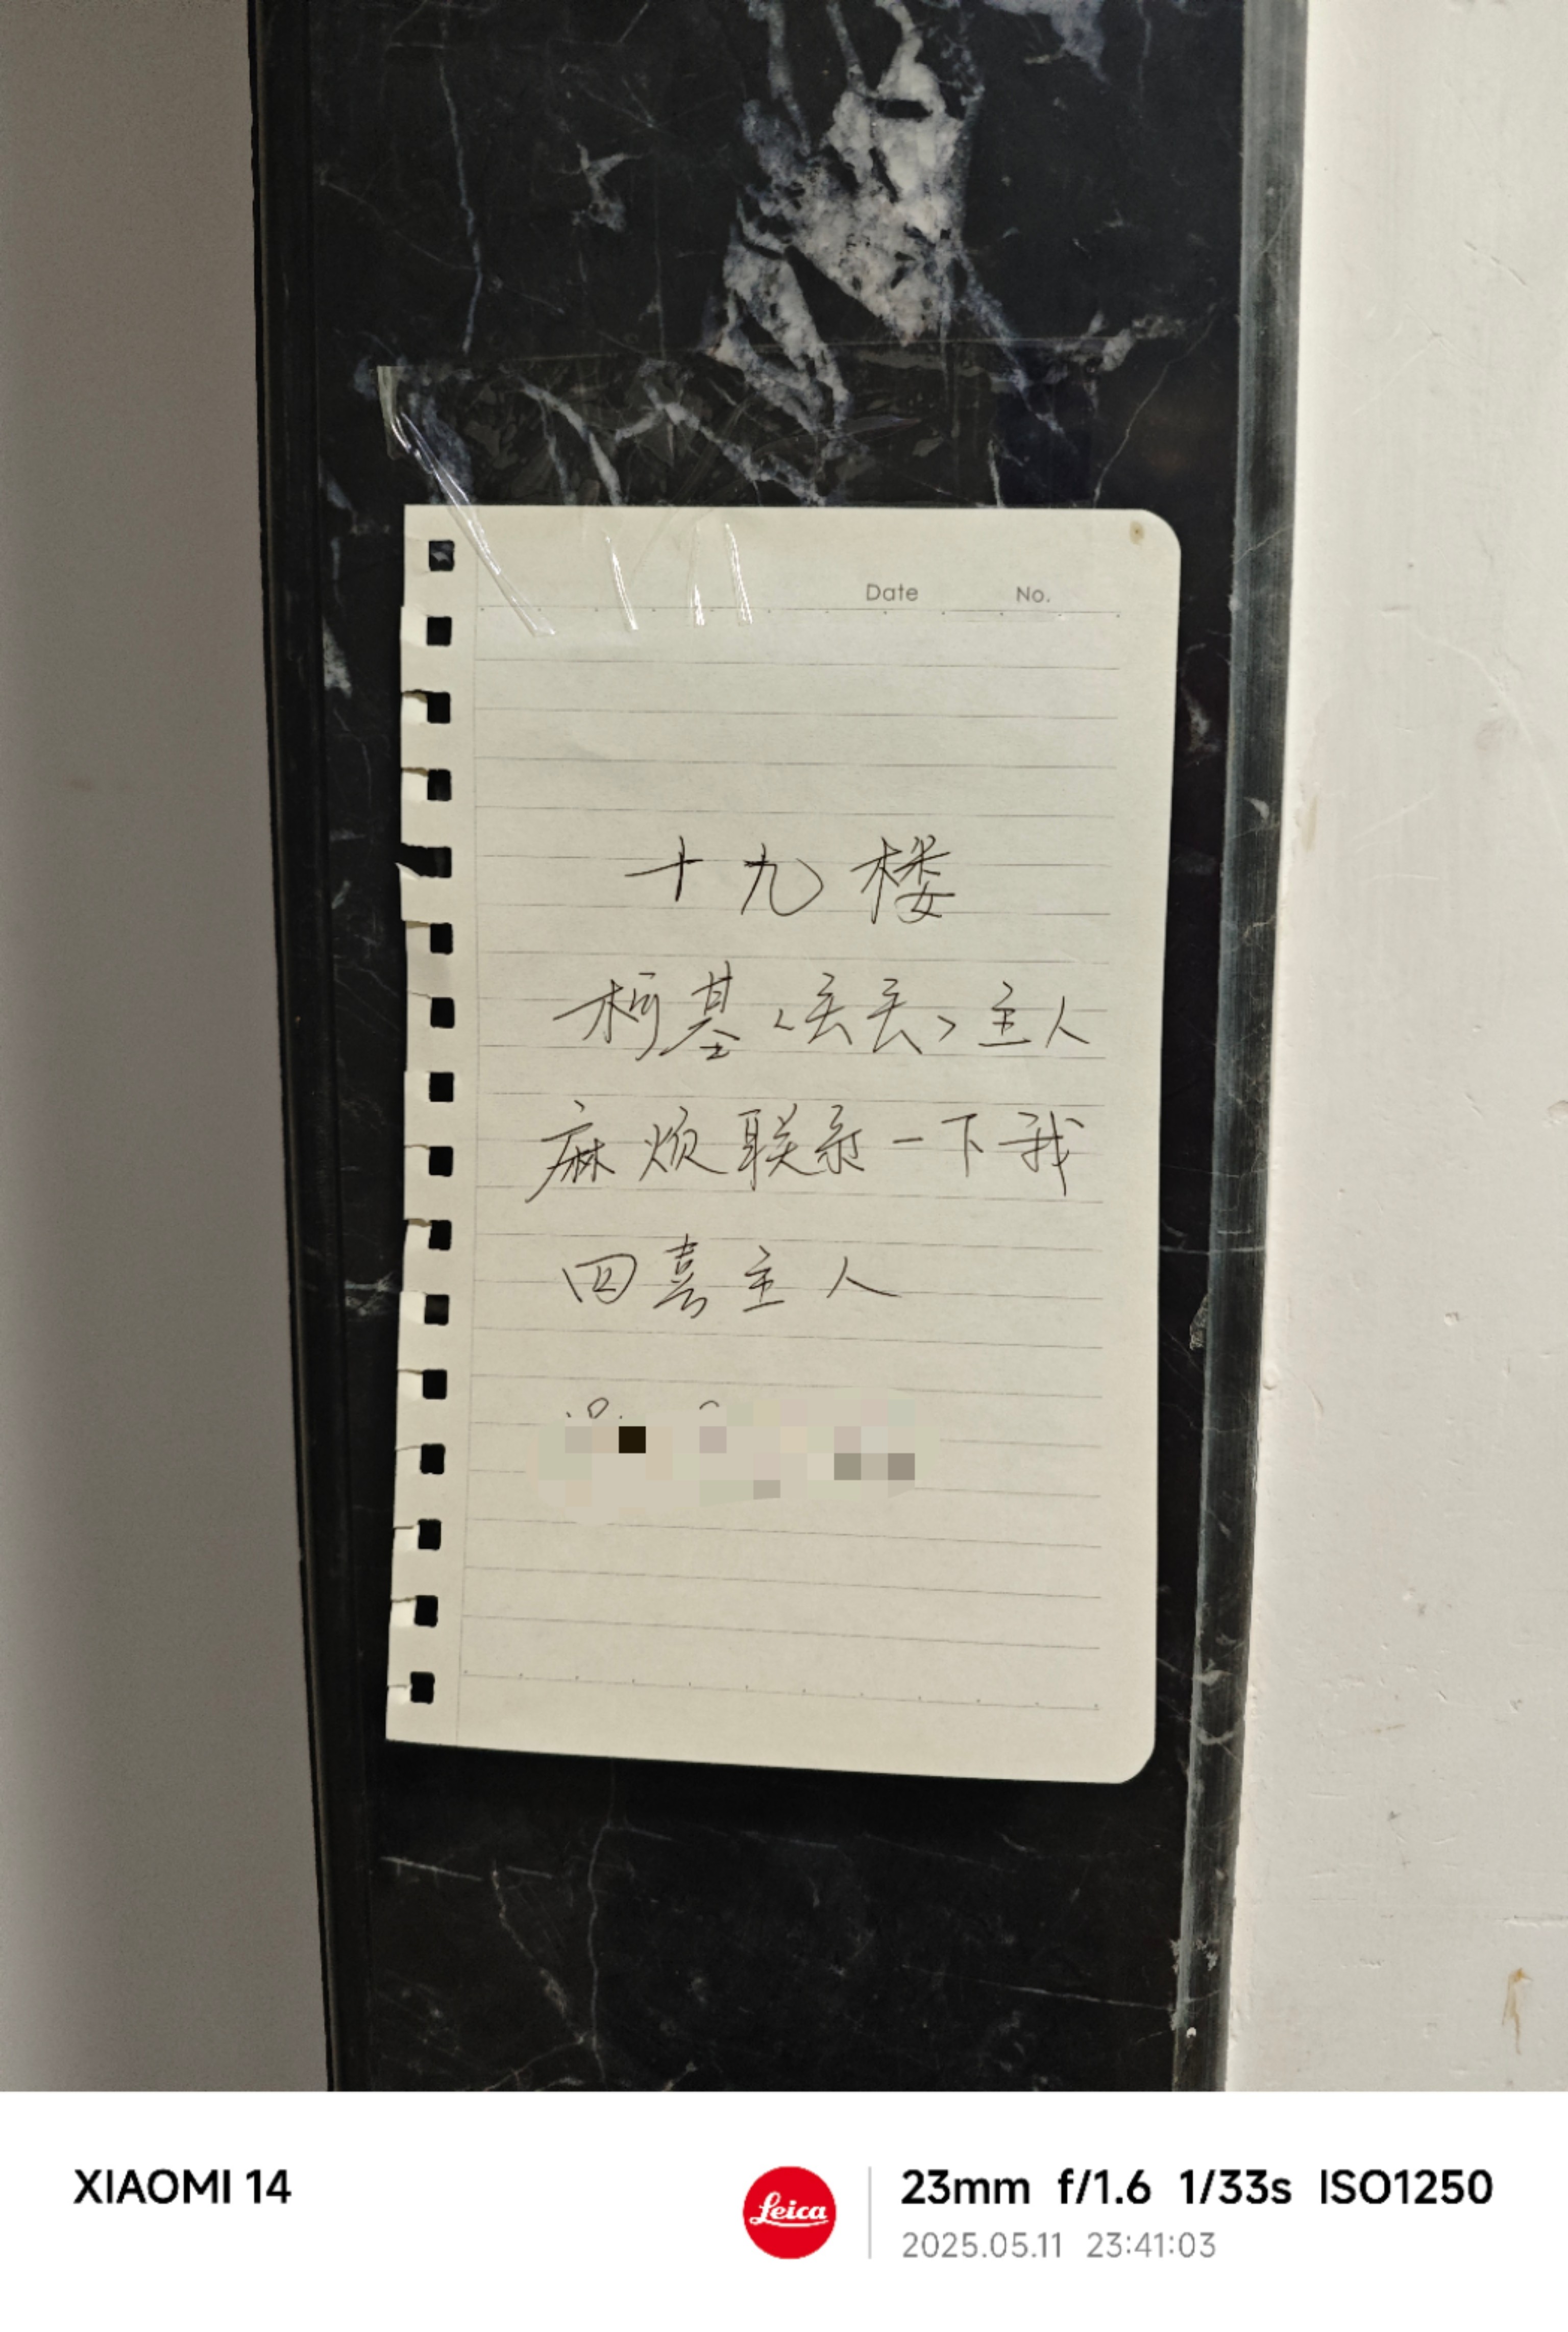 Date No.
十九楼
柯基<丢丢>主人
麻烦联系一下我
四喜主人
XIAOMI 14
Leica
23mm f/1.6 1/33s ISO1250
2025.05.11 23:41:03